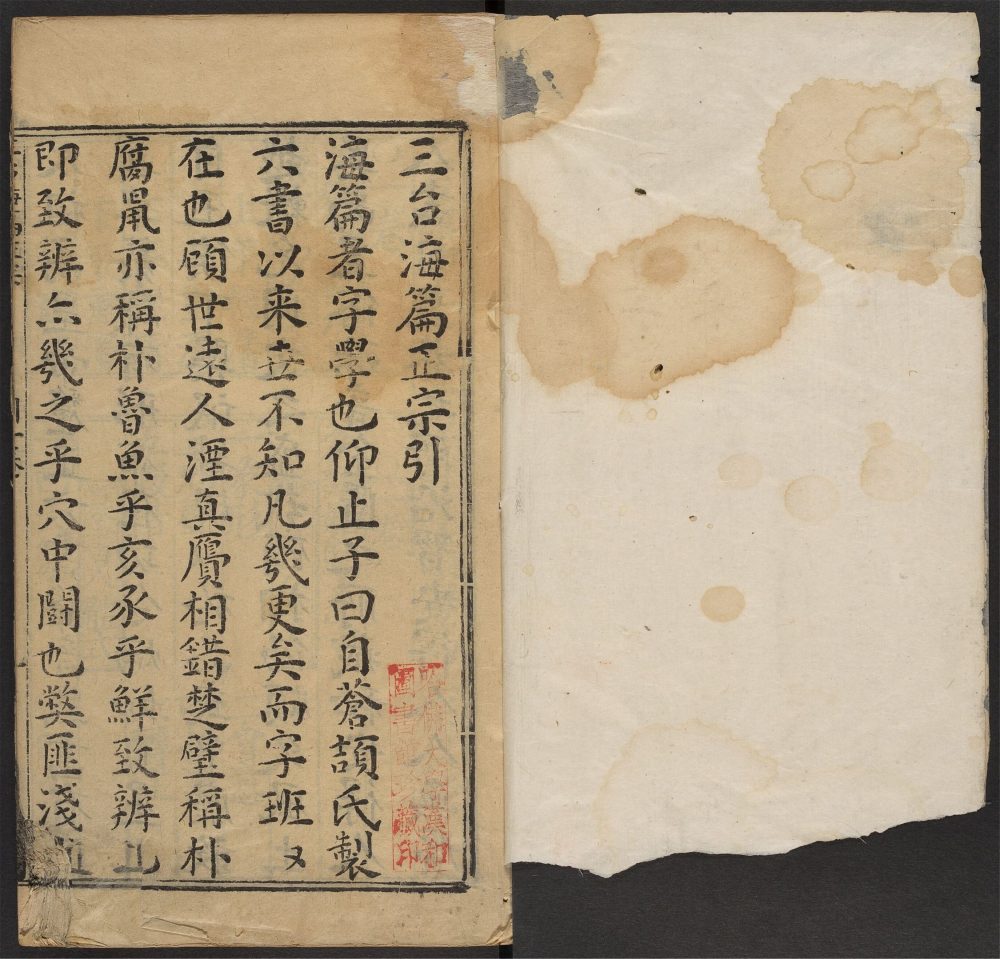 三台海篇正宗引
海篇者字學也仰止子曰自蒼頡氏製
六書以来世不知凡幾更矣而字班又
在也顧世遠人湮真贗相錯楚璧稱朴
腐鼠亦稱朴魯魚乎亥豕乎鮮致辨
即致辨亦幾之乎穴中鬬也獘匪淺
哈佛大學漢和
圖書館珍藏印